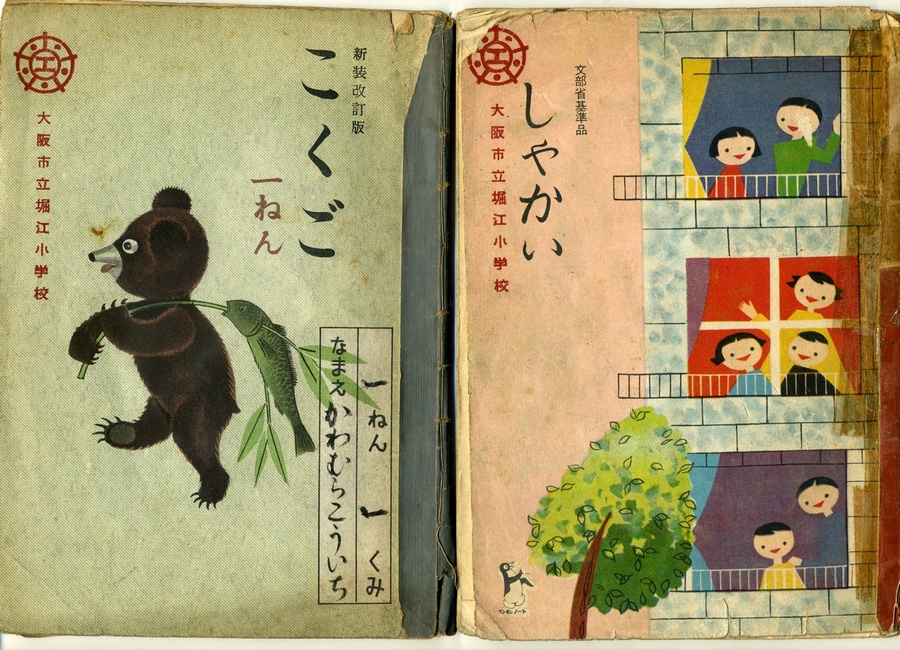 新装改訂版
こくご
一ねん
大阪市立堀江小学校
一ねん 一くみ
なまえ かわむらこういち
文部省基準品
しゃかい
大阪市立堀江小学校
ペンギンノート